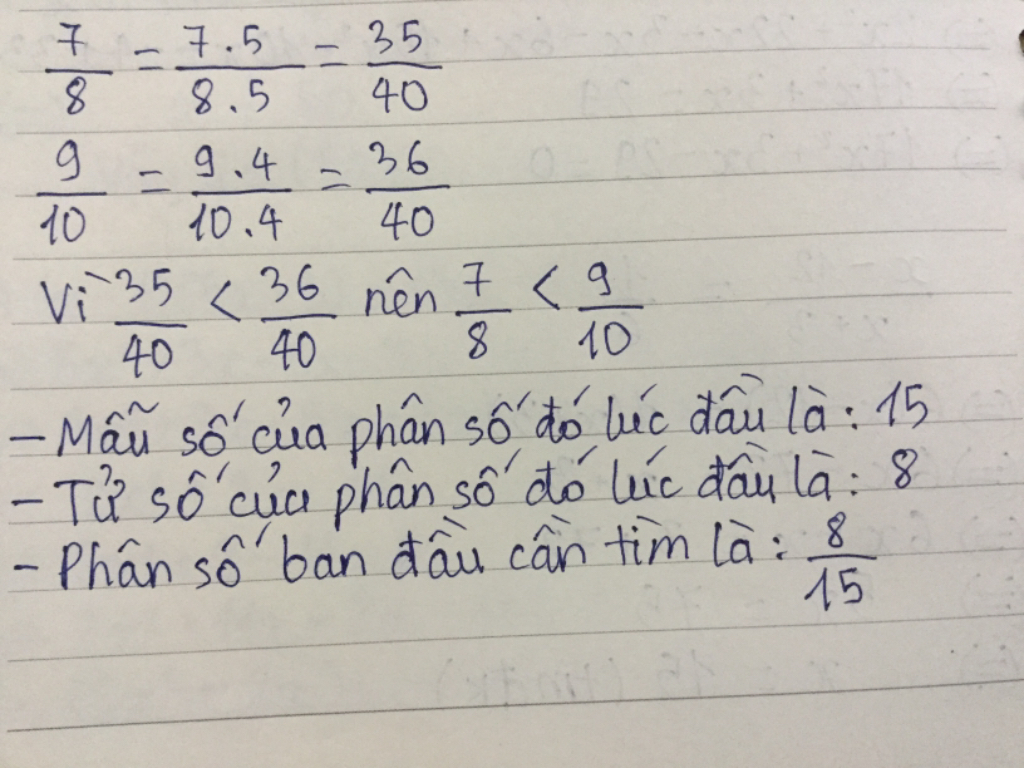 7/8 = 7.5/8.5 = 35/40
9/10 = 9.4/10.4 = 36/40
Vì 35/40 < 36/40 nên 7/8 < 9/10
- Mẫu số của phân số đó lúc đầu là: 15
- Tử số của phân số đó lúc đầu là: 8
- Phân số ban đầu cần tìm là: 8/15